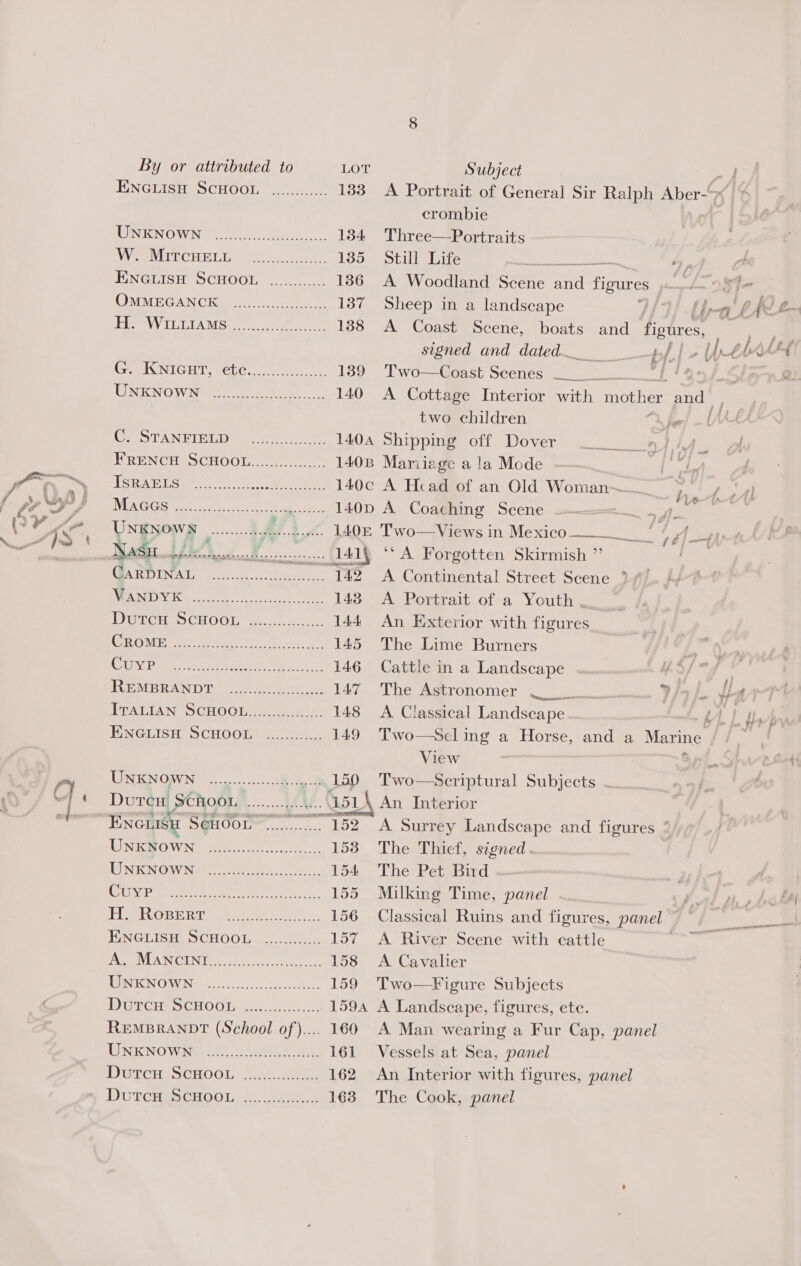 8
By or attributed to LOT Subject
ENGLISH SCHOOL ............ 133 A Portrait of General Sir Ralph Aber-
crombie
UNKNOWN ............ 134 Three—Portraits
W. MITCHELL ............ 135 Still Life
ENGLISH SCHOOL ............ 136 A Woodland Scene and figures
OMMEGANCK ............ 137 Sheep in a landscape
H. WILLIAMS ............ 138 A Coast Scene, boats and figures,
signed and dated
G. KNIGHT, etc. ............ 139 Two—Coast Scenes
UNKNOWN ............ 140 A Cottage Interior with mother and
two children
C. STANFIELD ............ 140A Shipping off Dover
FRENCH SCHOOL ............ 140B Mariiage a la Mode
ISRAELS ............ 140C A Head of an Old Woman
MAGGS ............ 140D A Coaching Scene
UNKNOWN ............ 140E Two—Views in Mexico
NASH ............ 141 “A Forgotten Skirmish”
CARDINAL ............ 142 A Continental Street Scene
VANDYK ............ 143 A Portrait of a Youth
DUTCH SCHOOL ............ 144 An Exterior with figures
CROME ............ 145 The Lime Burners
CUYP ............ 146 Cattle in a Landscape
REMBRANDT ............ 147 The Astronomer
ITALIAN SCHOOL ............ 148 A Classical Landscape
ENGLISH SCHOOL ............ 149 Two—Scling a Horse, and a Marine
View
UNKNOWN ............ 150 Two—Scriptural Subjects
DUTCH SCHOOL ............ 151 An Interior
ENGLISH SCHOOL ............ 152 A Surrey Landscape and figures
UNKNOWN ............ 153 The Thief, signed
UNKNOWN ............ 154 The Pet Bird
CUYP ............ 155 Milking Time, panel
H. ROBERT ............ 156 Classical Ruins and figures, panel
ENGLISH SCHOOL ............ 157 A River Scene with cattle
A. MANCINI ............ 158 A Cavalier
UNKNOWN ............ 159 Two—Figure Subjects
DUTCH SCHOOL ............ 159A A Landscape, figures, etc.
REMBRANDT (School of).... 160 A Man wearing a Fur Cap, panel
UNKNOWN ............ 161 Vessels at Sea, panel
DUTCH SCHOOL ............ 162 An Interior with figures, panel
DUTCH SCHOOL ............ 163 The Cook, panel